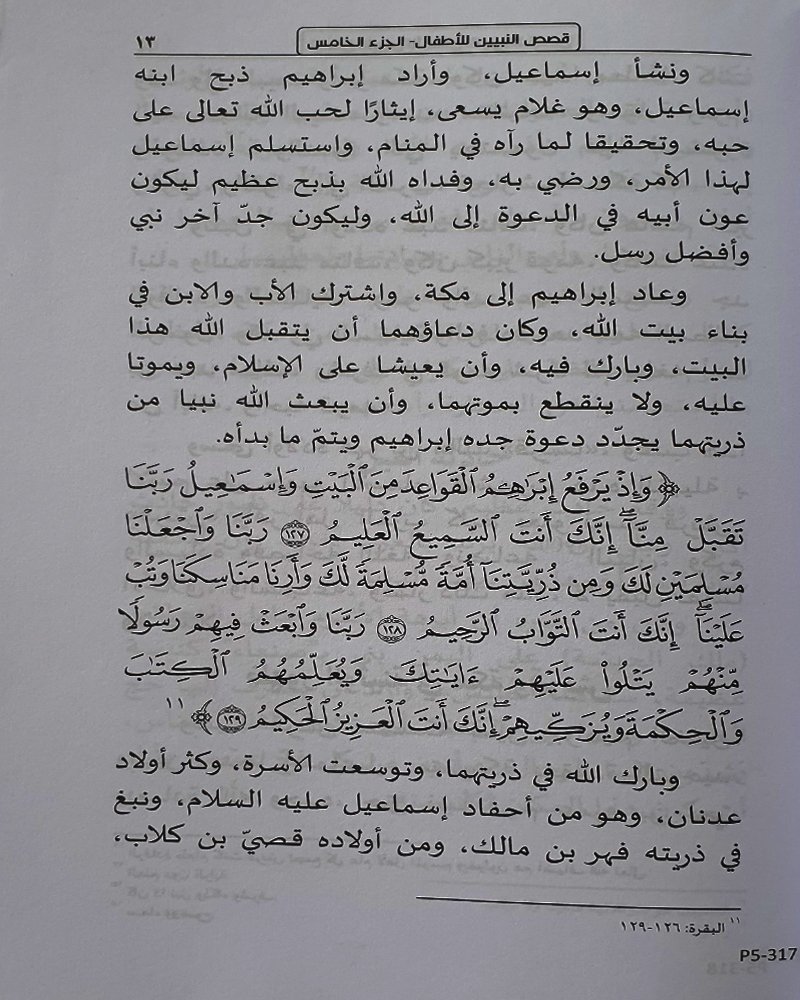 قصص النبيين للأطفال- الجزء الخامس ١٣
ونشأ إسماعيل، وأراد إبراهيم ذبح ابنه
إسماعيل، وهو غلام يسعى، إيثارًا لحب الله تعالى على
حبه، وتحقيقا لما رآه في المنام، واستسلم إسماعيل
لهذا الأمر، ورضي به، وفداه الله بذبح عظيم ليكون
عون أبيه في الدعوة إلى الله، وليكون جدّ آخر نبي
وأفضل رسل.
وعاد إبراهيم إلى مكة، واشترك الأب والابن في
بناء بيت الله، وكان دعاؤهما أن يتقبل الله هذا
البيت، وبارك فيه، وأن يعيشا على الإسلام، ويموتا
عليه، ولا ينقطع بموتهما، وأن يبعث الله نبيا من
ذريتهما يجدّد دعوة جده إبراهيم ويتمّ ما بدأه.
﴿ وَإِذْ يَرْفَعُ إِبْرَٰهِـۧمُ ٱلْقَوَاعِدَ مِنَ ٱلْبَيْتِ وَإِسْمَٰعِيلُ رَبَّنَا
تَقَبَّلْ مِنَّآ ۖ إِنَّكَ أَنتَ ٱلسَّمِيعُ ٱلْعَلِيمُ ١٢٧ رَبَّنَا وَٱجْعَلْنَا
مُسْلِمَيْنِ لَكَ وَمِن ذُرِّيَّتِنَآ أُمَّةً مُّسْلِمَةً لَّكَ وَأَرِنَا مَنَاسِكَنَا وَتُبْ
عَلَيْنَآ ۖ إِنَّكَ أَنتَ ٱلتَّوَّابُ ٱلرَّحِيمُ ١٢٨ رَبَّنَا وَٱبْعَثْ فِيهِمْ رَسُولًا
مِّنْهُمْ يَتْلُوا۟ عَلَيْهِمْ ءَايَٰتِكَ وَيُعَلِّمُهُمُ ٱلْكِتَٰبَ
وَٱلْحِكْمَةَ وَيُزَكِّيهِمْ ۚ إِنَّكَ أَنتَ ٱلْعَزِيزُ ٱلْحَكِيمُ ١٢٩ ﴾ ١١
وبارك الله في ذريتهما، وتوسعت الأسرة، وكثر أولاد
عدنان، وهو من أحفاد إسماعيل عليه السلام، ونبغ
في ذريته فهر بن مالك، ومن أولاده قصيّ بن كلاب،
١١ البقرة: ١٢٦-١٢٩
P5-317